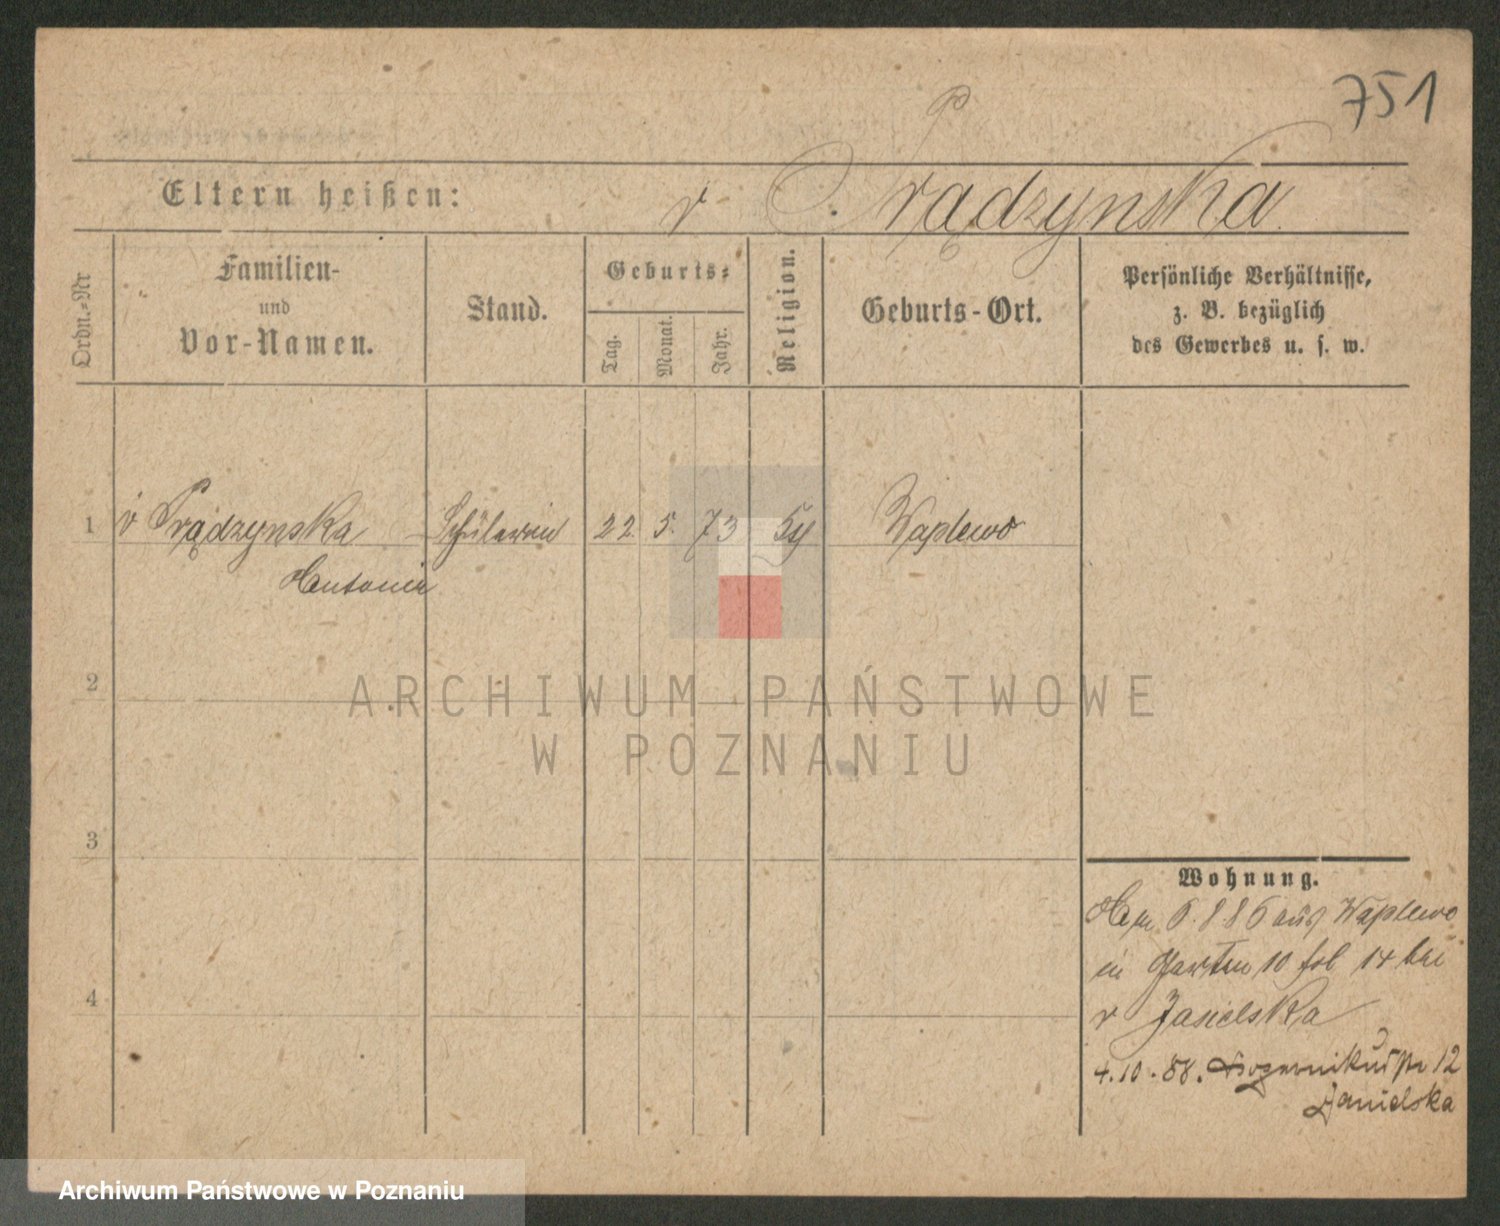 751
Eltern heißen: v Prądzynska
Ordn.-Nr
Familien-
und
Vor-Namen.
Stand.
Geburts-
Tag.
Monat.
Jahr.
Religion.
Geburts-Ort.
Persönliche Verhältnisse,
z. B. bezüglich
des Gewerbes u. s. w.
1 v Prądzynska Schülerin 22. 5. 73 Waplewo
Antonie
2
ARCHIWUM PAŃSTWOWE
W POZNANIU
3
4
Wohnung.
6.8.86 aus Waplewo
in Garten 10 14 bei
v Jasielska
4.10.88. 12
Archiwum Państwowe w Poznaniu